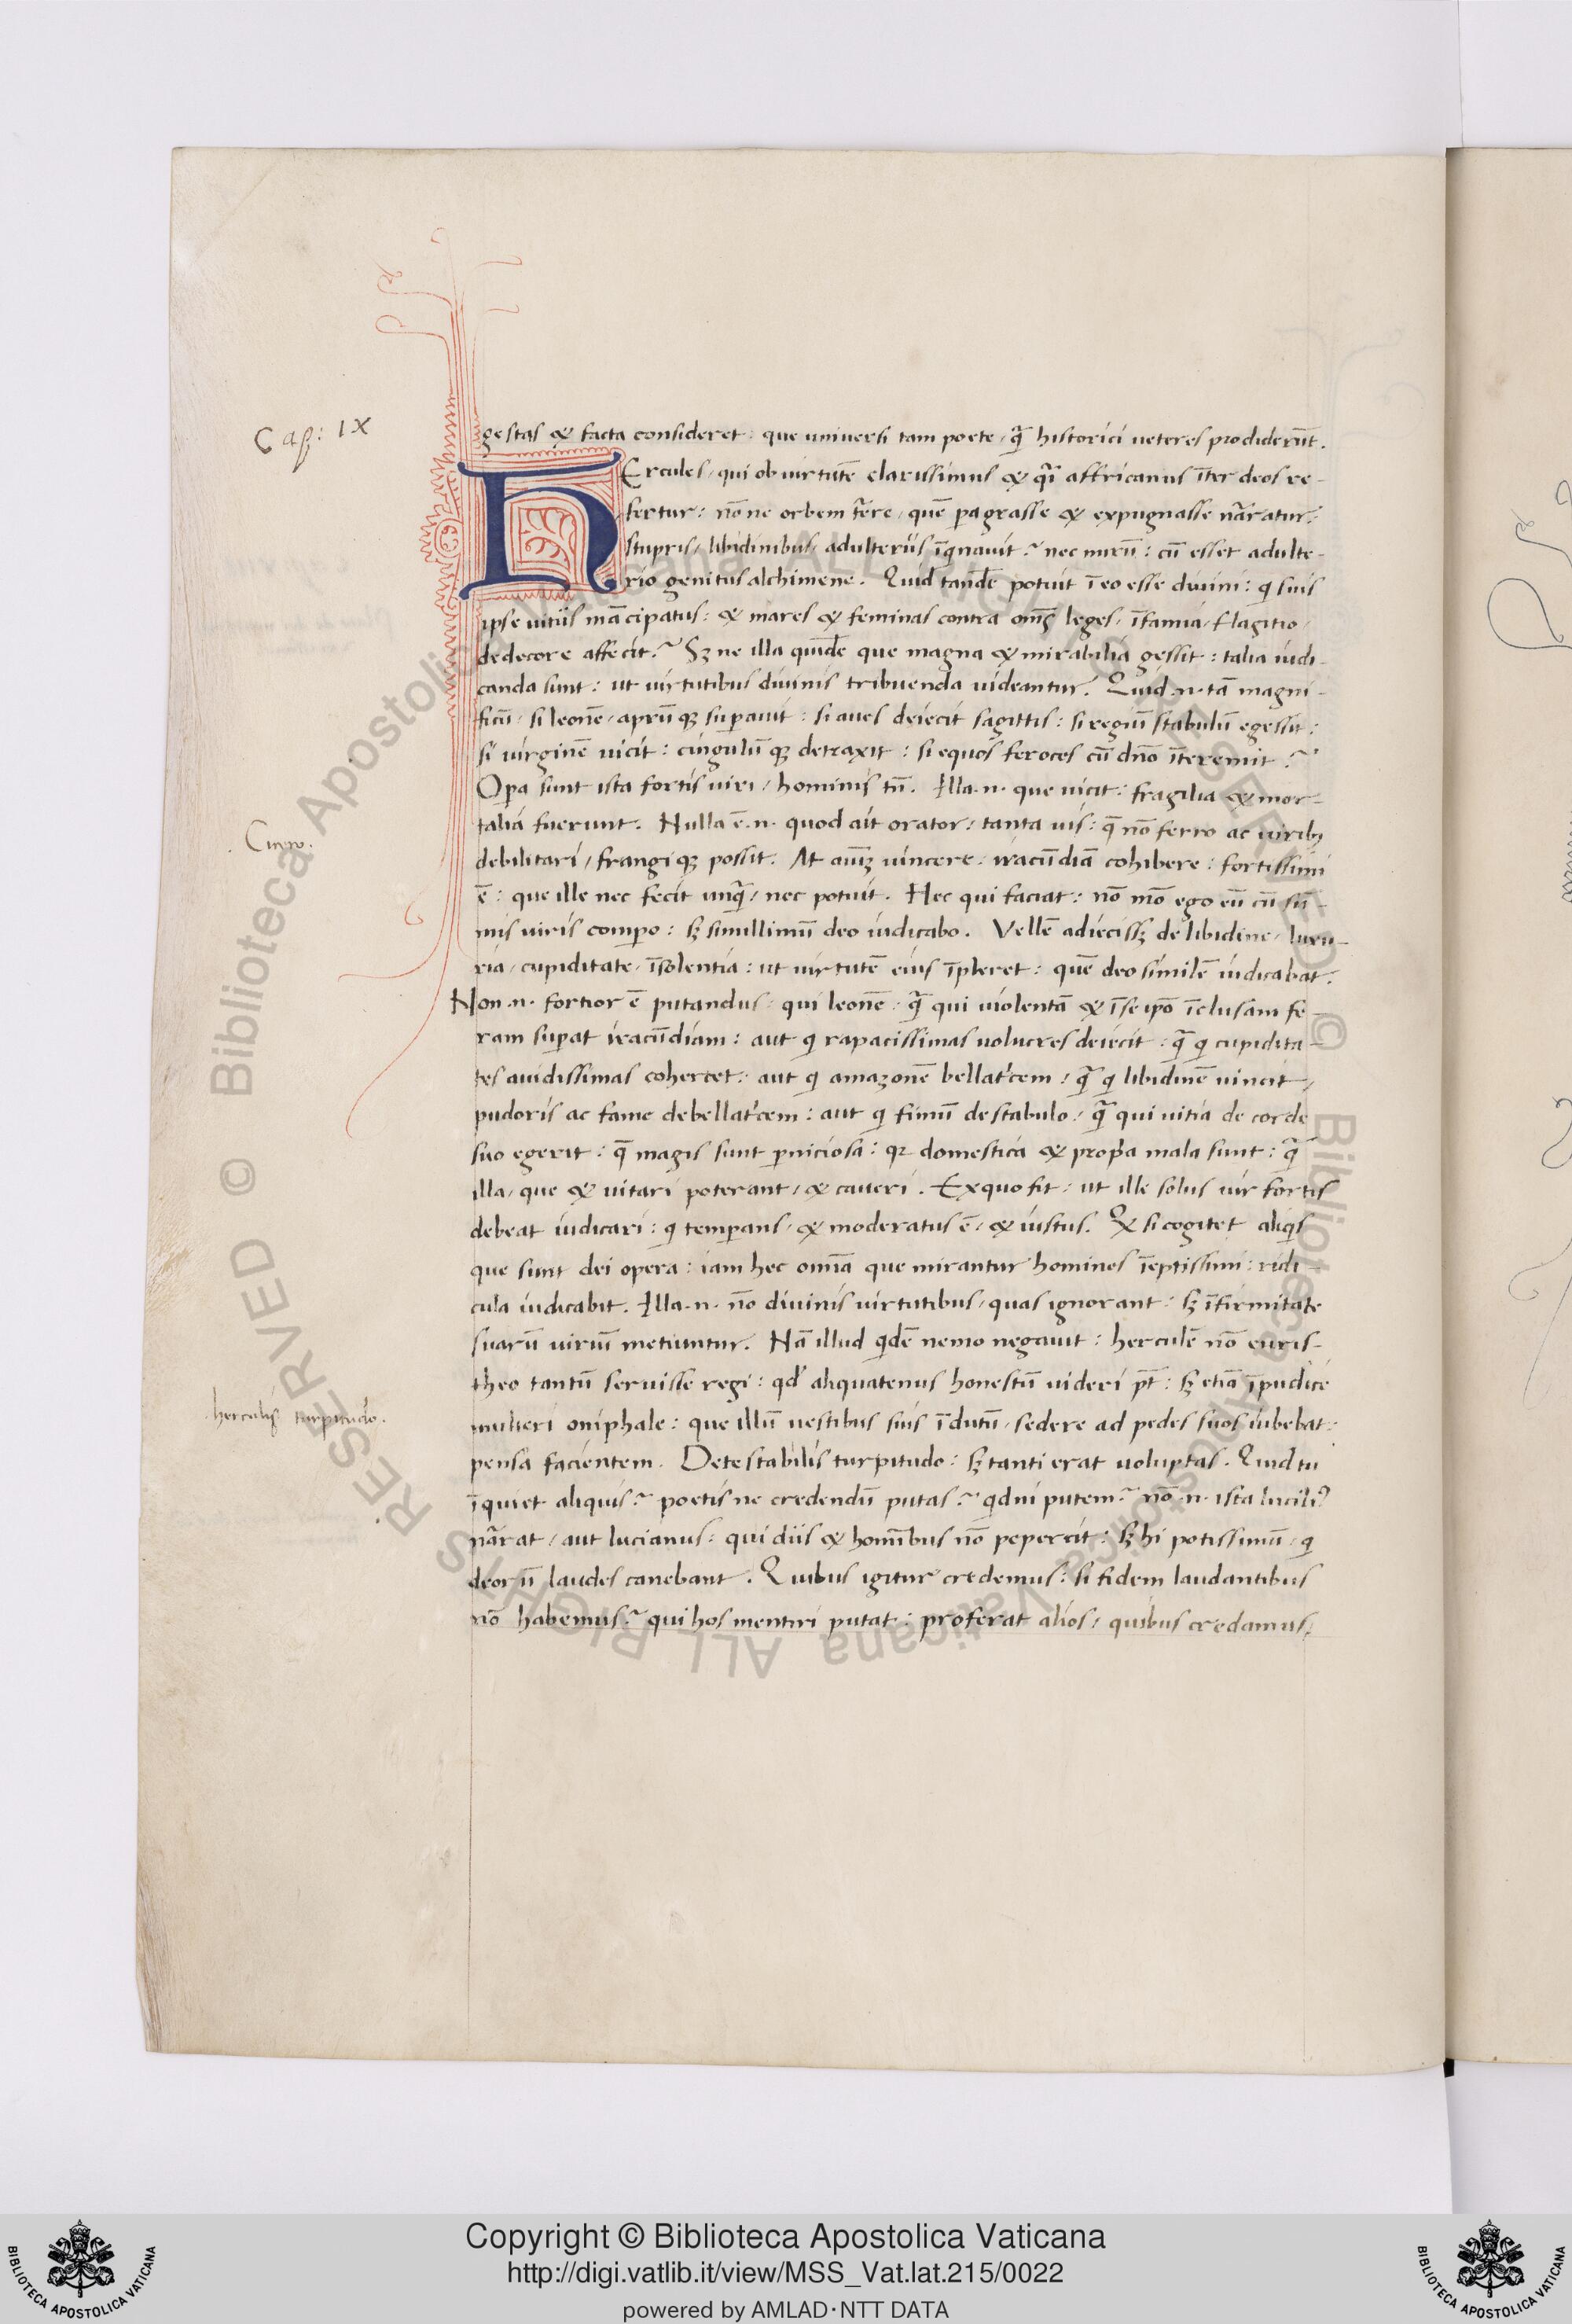 Cap: IX
gestas & facta consideret: que universi tam poete, qȝ historici ueteres prodiderūt.
HErcules, qui ob uirtutē clarissimus & qȝi affricanus īter deos re-
fertur: nōne orbem t̄ere, quē ꝑagrasse & expugnasse nāratur:
stupris, libidinibus, adulteriis īqnauit? nec mirū: cū esset adulte-
rio genitus alchimene. Quid tandē potuit ī eo esse diuini: q suis
ipse uitiis mācipatus: & mares & feminas contra om̄s leges, īfamia, flagitio,
dedecore affecit? Sȝ ne illa quidē que magna & mirabilia gessit: talia iudi-
canda sunt: ut uirtutibus diuinis tribuenda uideantur. Quid .n. tā magni-
ficū, si leonē, aprūqȝ suꝑauit: si aues deiecit sagittis: si regiū stabulū egessit:
si uirginē uicit: cingulūqȝ detraxit: si equos feroces cū dn̄o īteremit?
Oꝑa sunt ista fortis uiri, hominis tn̄. Illa .n. que uicit: fragilia & mor-
talia fuerunt. Nulla ē .n. quod ait orator, tanta uis: q̄ nō ferro ac uiribȝ
Cicero.
debilitari, frangiqȝ possit. At aīuȝ uincere, iracūdiā cohibere: fortissimi
ē: que ille nec fecit unq̄, nec potuit. Hec qui faciat: nō mō ego eū cū sū-
mis uiris comꝑo: sȝ simillimū deo iudicabo. Vellē adiecissȝ de libidine, luxu-
ria, cupiditate, īsolentia: ut uirtutē eius īpleret: quē deo similē iudicabat.
Non .n. fortior ē putandus: qui leonē, q̄ qui uiolentā & ī se ip̄o īclusam fe-
ram suꝑat iracūdiam: aut q rapacissimas uolucres deiecit: q̄ q cupidita-
tes auidissimas cohercet: aut q amazonē bellat'cem, q̄ q libidinē uincit,
pudoris ac fame debellat'cem: aut q fimū de stabulo, q̄ qui uitia de corde
suo egerit: q̄ magis sunt ꝑniciosa: qꝛ domestica & prop̄a mala sunt: q̄
illa, que & uitari poterant, & caueri. Ex quo fit: ut ille solus uir fortis
debeat iudicari: q temꝑans, & moderatus ē, & iustus. Q si cogitet aliqs
que sunt dei opera: iam hec omīa que mirantur homines īeptissimi: ridi-
cula iudicabit. Illa .n. nō diuinis uirtutibus, quas ignorant: sȝ īfirmitate
suarū uiriū metiuntur. Nā illud qdē nemo negauit: herculē nō euris-
theo tantū seruisse regi: qd' aliquatenus honestū uideri pt̄: sȝ etiā īpudice
herculis turpitudo.
mulieri omphale: que illū uestibus suis īdutū, sedere ad pedes suos iubebat:
pensa facientem. Detestabilis turpitudo: sȝ tanti erat uoluptas. Quid tu
īquiet aliquis? poetis ne credendū putas? qdni putem? nō .n. ista lucili9
nārat, aut lucianus: qui diis & homībus nō pepercit: sȝ hi potissimū, q
deorū laudes canebant. Quibus igitur credemus: si fidem laudantibus
nō habemus? qui hos mentiri putat: proferat alios, quibus credamus,
© Biblioteca Apostolica Vaticana ALL RIGHTS RESERVED
© Biblioteca Apostolica Vaticana ALL RIGHTS RESERVED
Copyright © Biblioteca Apostolica Vaticana
http://digi.vatlib.it/view/MSS_Vat.lat.215/0022
powered by AMLAD·NTT DATA
BIBLIOTECA APOSTOLICA VATICANA
BIBLIOTECA APOSTOLICA VATICANA